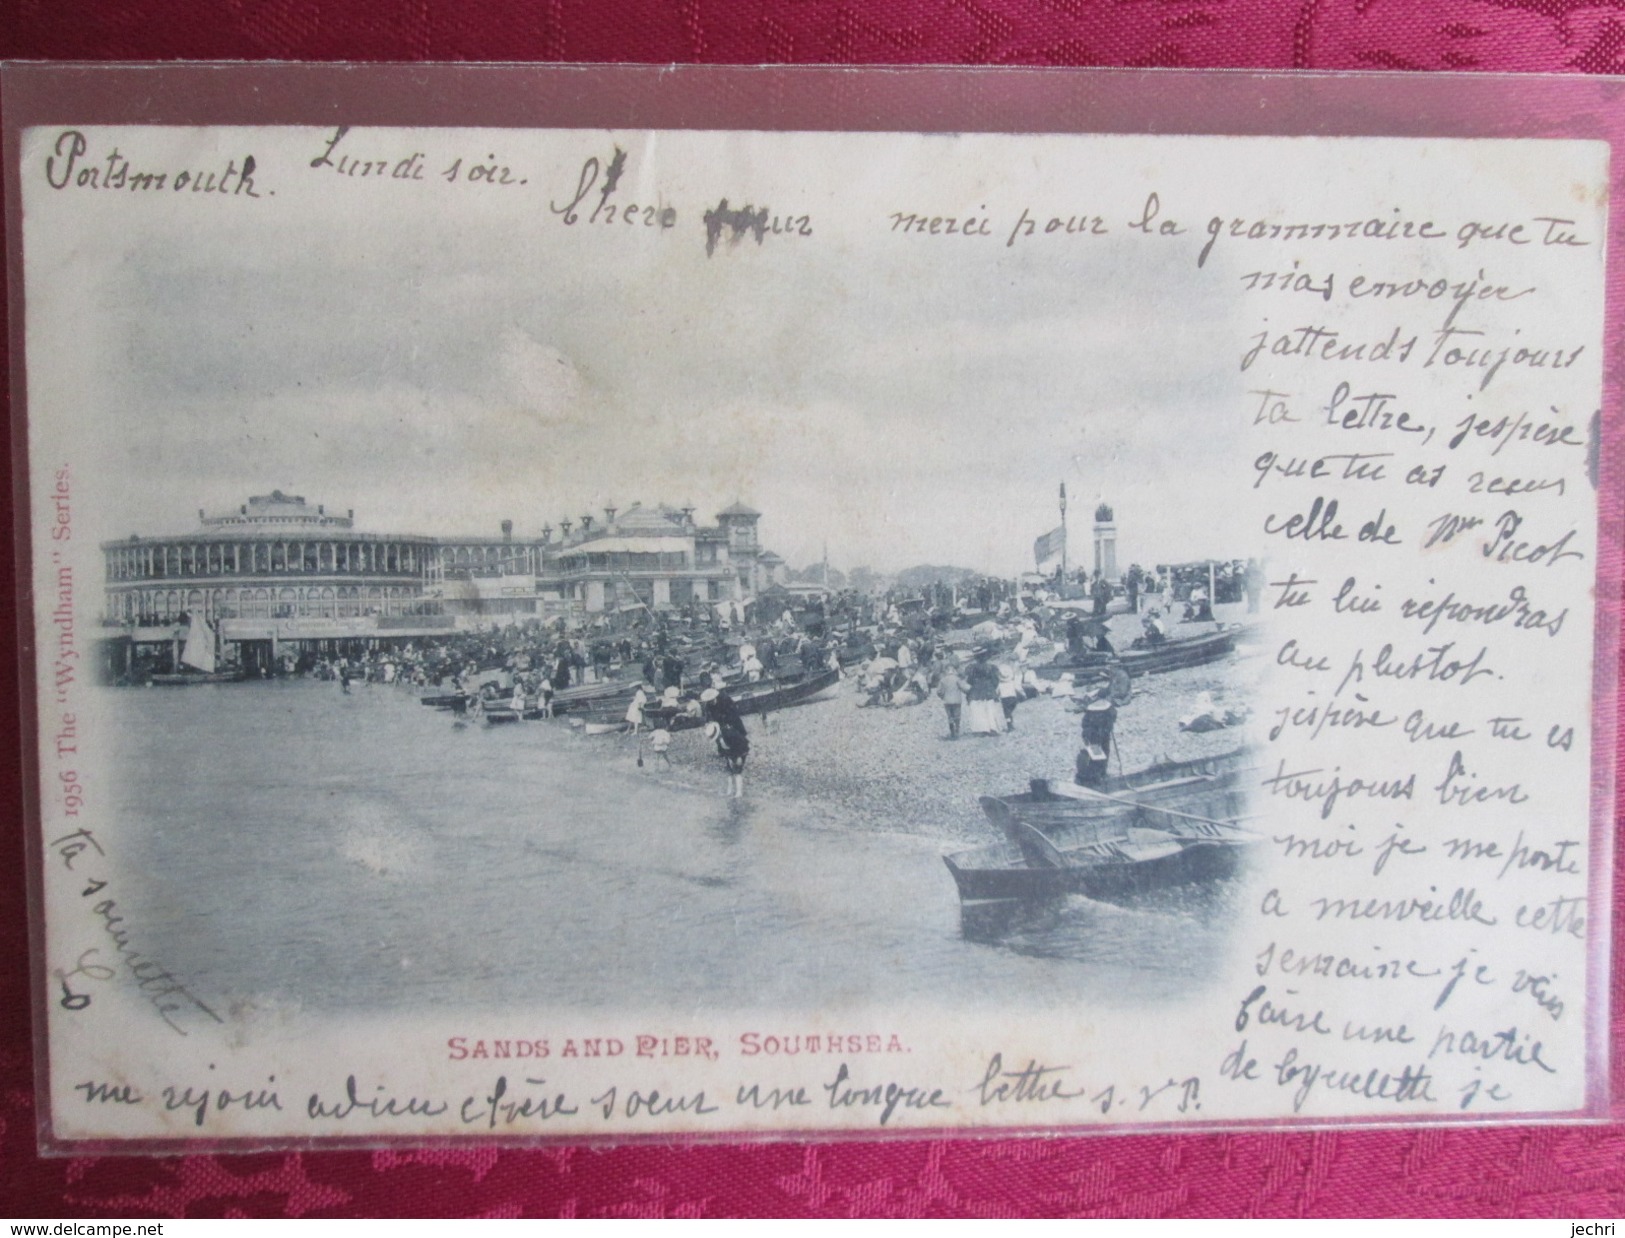 Portsmouth. Lundi soir.
Chere soeur merci pour la grammaire que tu
mas envoyer
jattends toujours
ta lettre, jespère
que tu as recus
celle de Mme Picot
tu lui répondras
au plustot.
jespère que tu es
toujours bien
moi je me porte
a merveille cette
semaine je vais
faire une partie
de byculette je
me rejoui adieu chère soeur une longue lettre s.v.P.
ta sourette
1956 The "Wyndham" Series.
SANDS AND PIER, SOUTHSEA.
www.delcampe.net
jechri